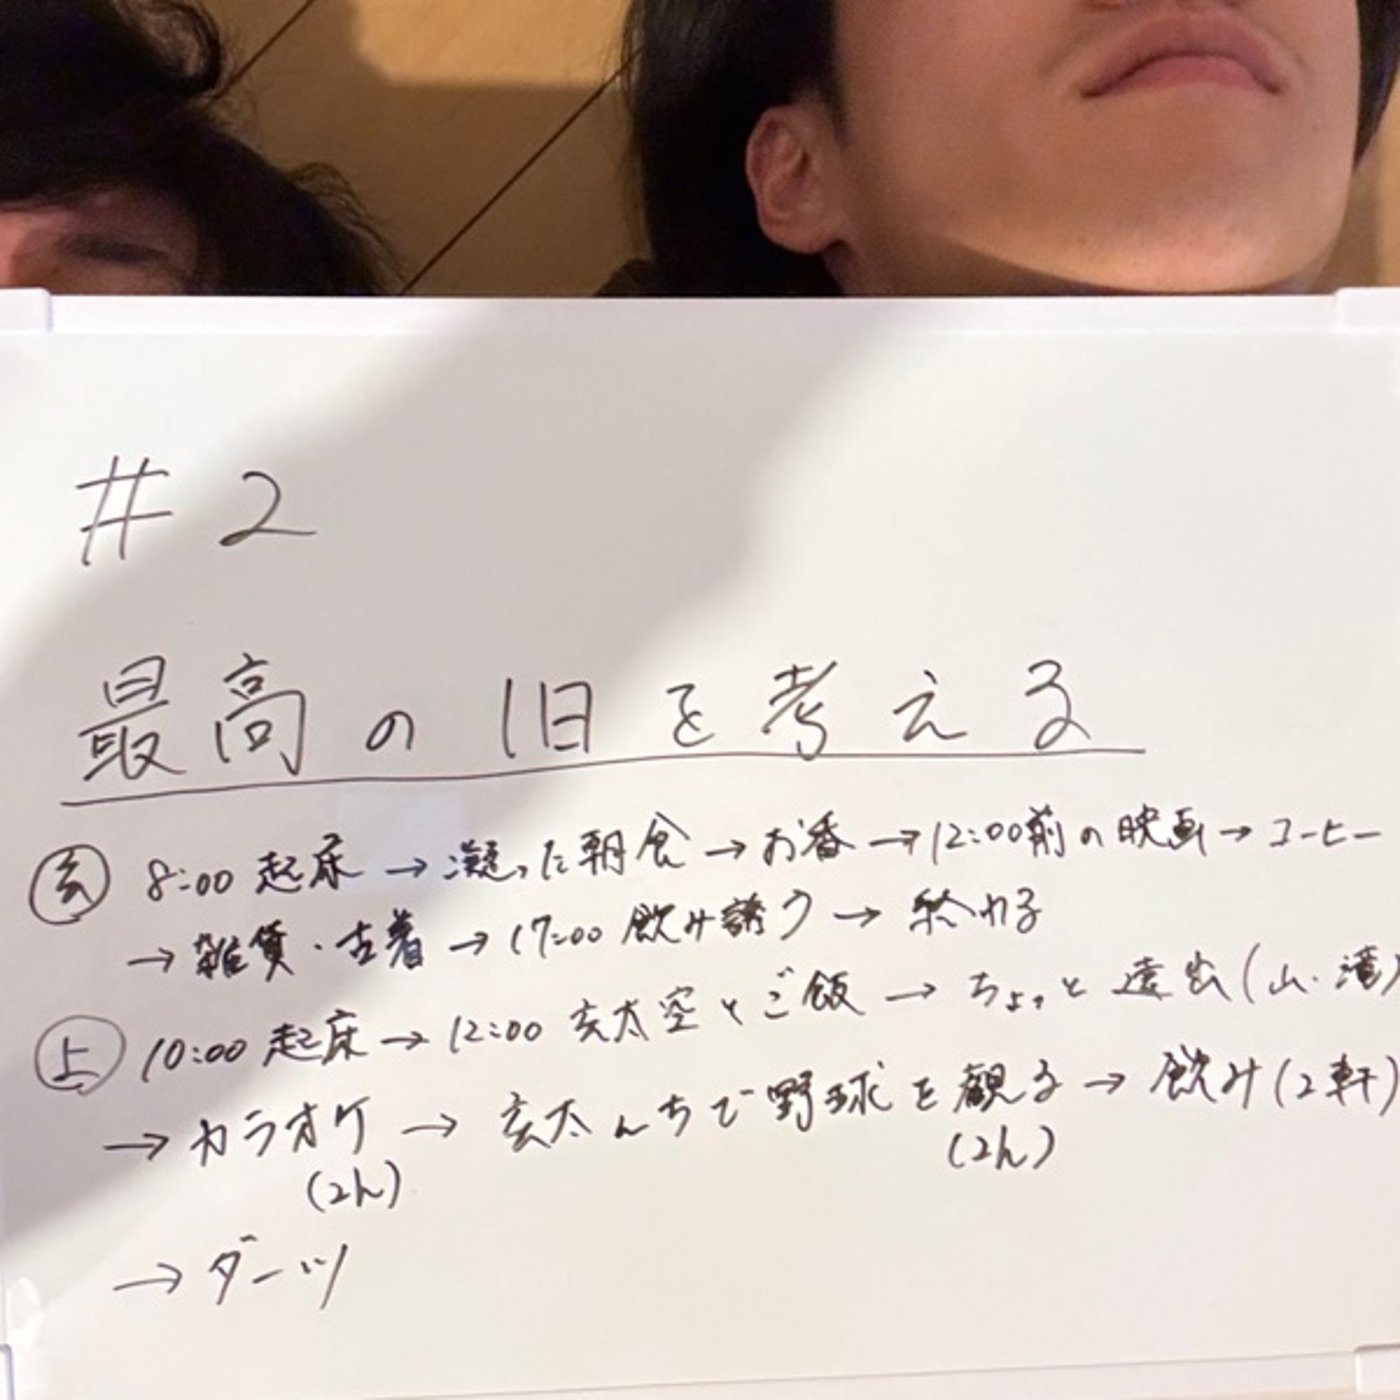 #2
最高の1日を考える
玄 8:00 起床 → 凝った朝食 → お香 → 12:00前の映画 → コーヒー
→ 雑貨・古着 → 17:00 飲み誘う → 終わる
上 10:00 起床 → 12:00 玄太空とご飯 → ちょっと遠出(山・滝)
→ カラオケ → 玄太んちで野球を観る → 飲み(2軒)
(2h) (2h)
→ ダーツ